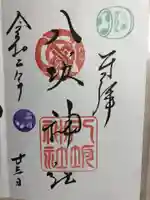 奉拝
八坂神社
令和二年
十三日
八坂
神社